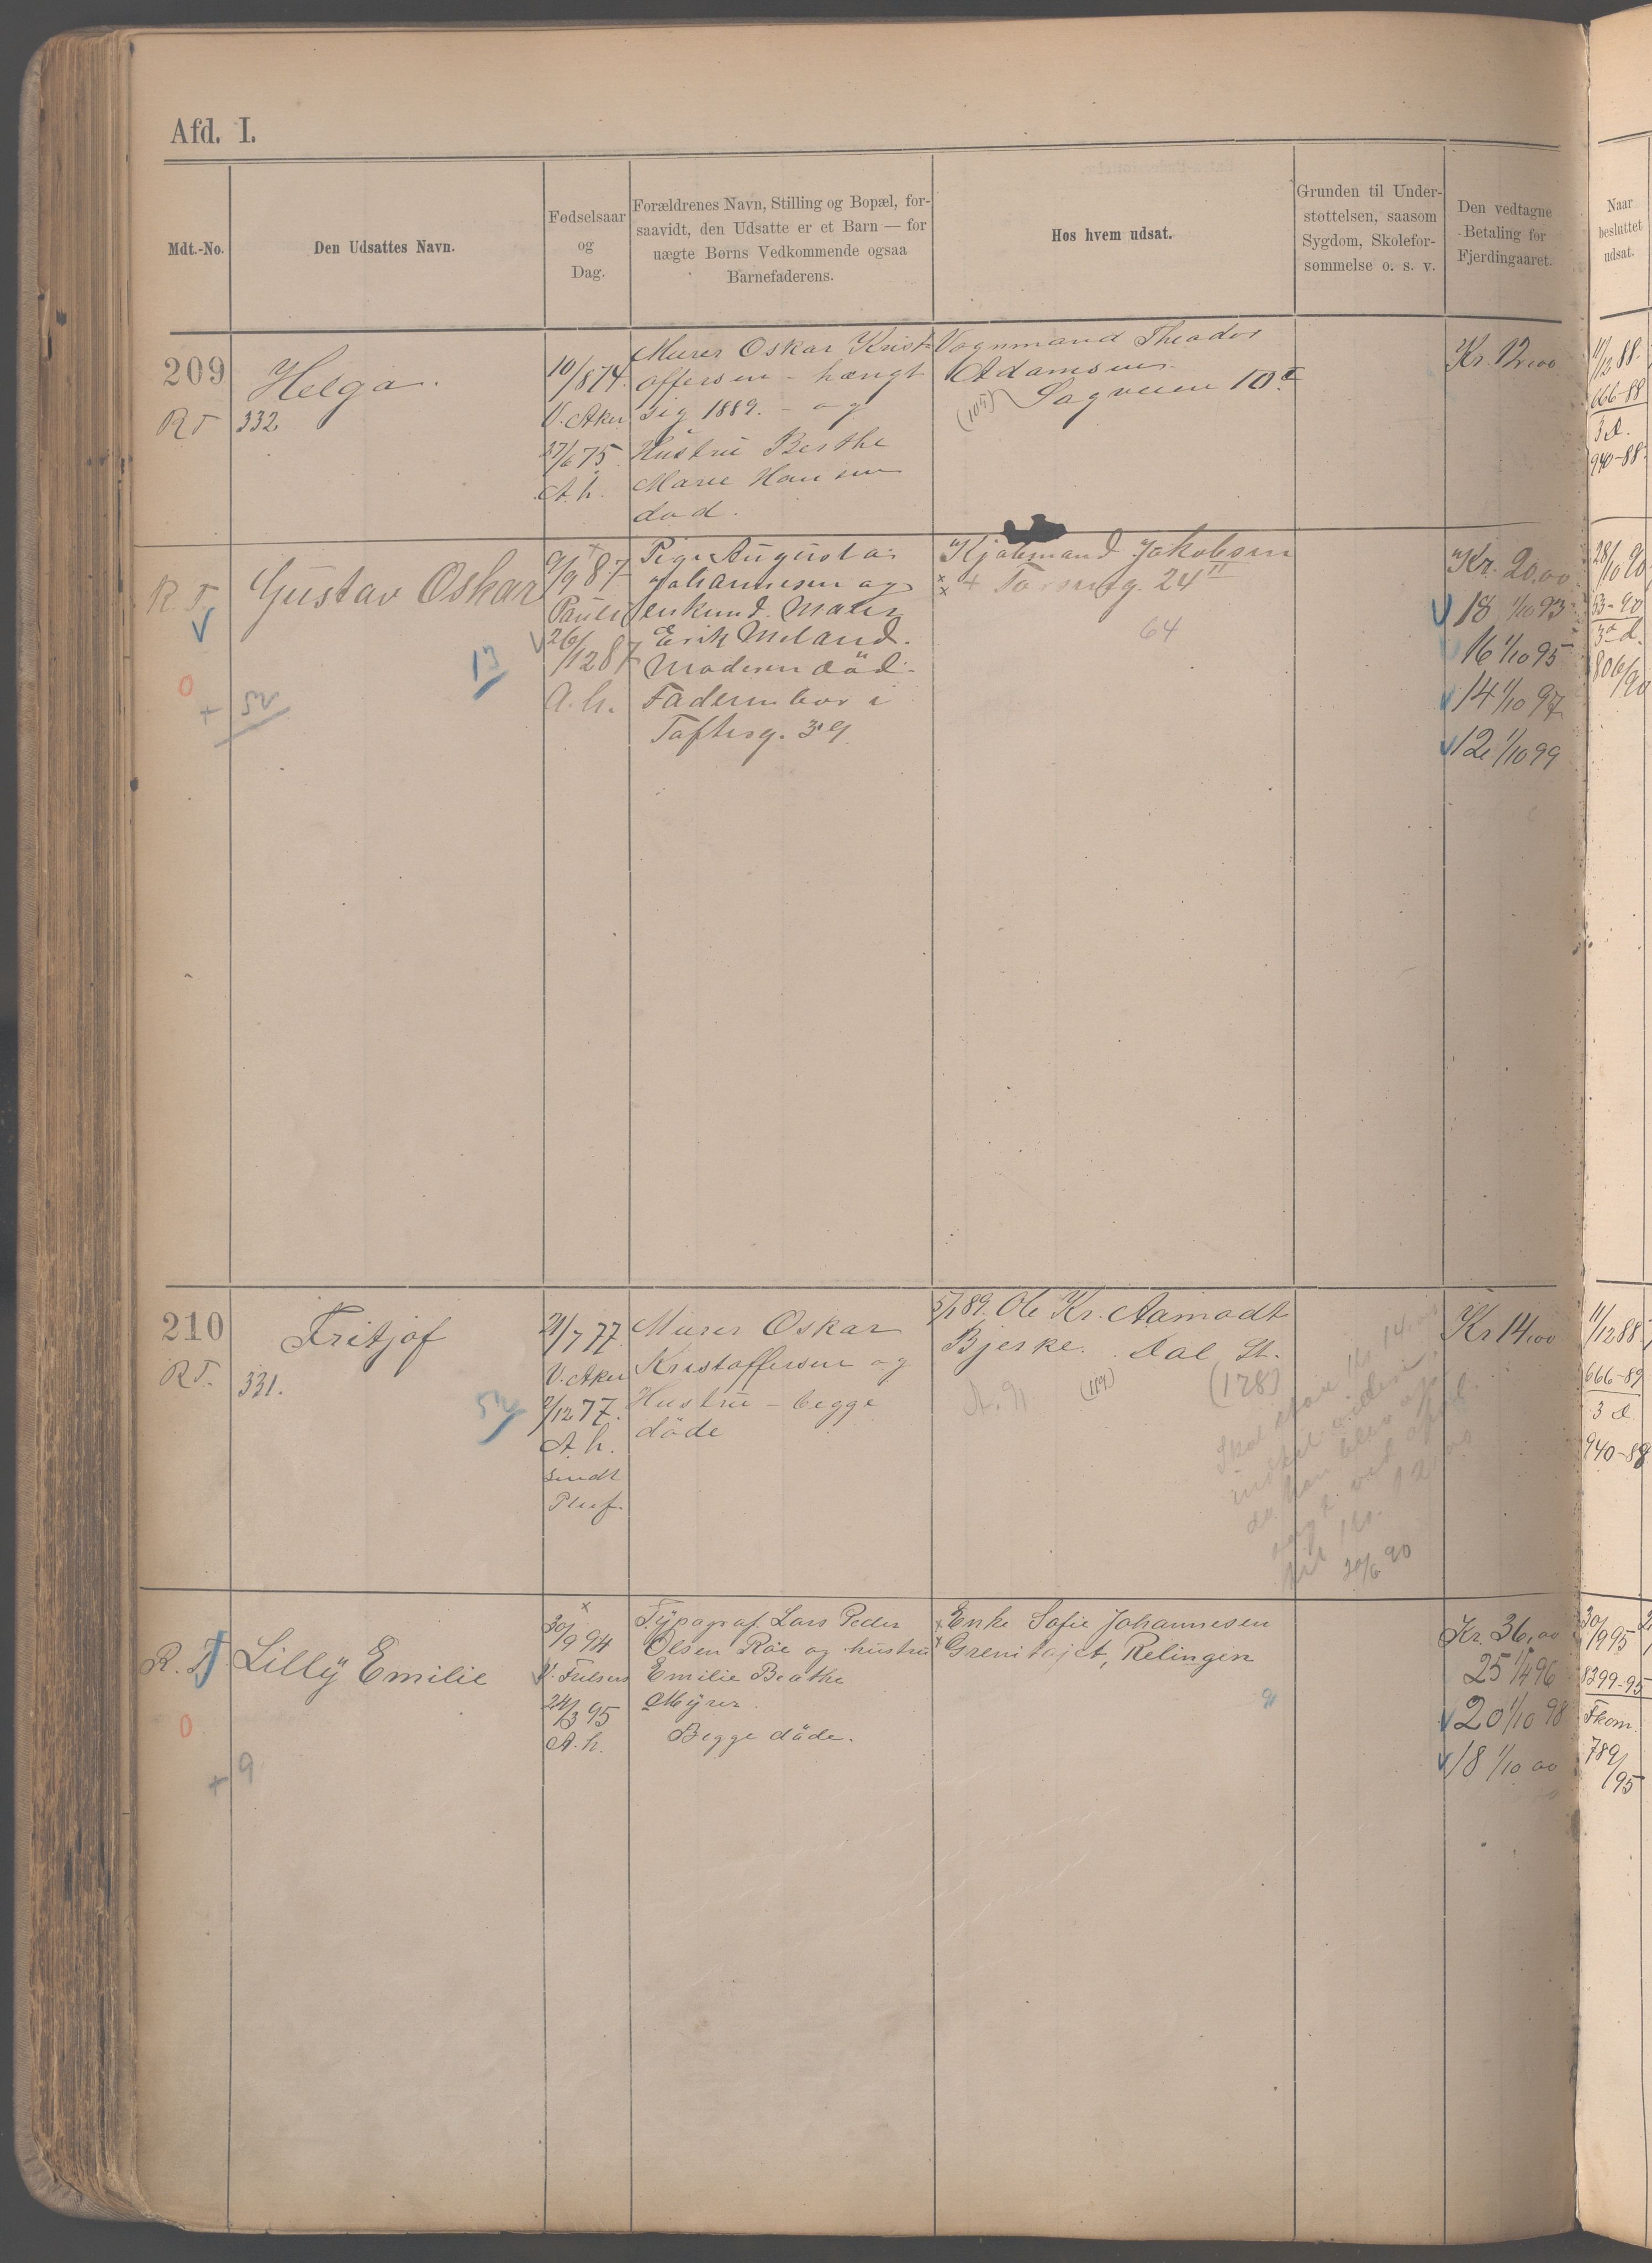 Afd. I.
Mdt.-No.
Den Udsattes Navn.
Fødselsaar
og
Dag.
Forældrenes Navn, Stilling og Bopæl, for-
saavidt, den Udsatte er et Barn — for
uægte Børns Vedkommende ogsaa
Barnefaderens.
Hos hvem udsat.
Grunden til Under-
støttelsen, saasom
Sygdom, Skolefor-
sømmelse o. s. v.
Den vedtagne
Betaling for
Fjerdingaaret.
Naar
besluttet
udsat.
209
RT
Helga.
332
10/8 74.
V. Aker
27/6 75
A. h.
Murer Oskar Krist-
offersen - hængt
sig 1889. - og
Hustru Berthe
Marie Hansen
død.
Vognmand Theodor
Adamsen
(105) Sagveien 10
Kr. 12,00
11/12 88.
666-88
3 d.
940-88.
R. T.
Gustav Oskar
52
13
9/9 87
Pauls
26/12 87
A. h.
Pige Augusta
Johannesen og
Maler
Erik Meland.
Moderen död.
Faderen bor i
Toftesg. 39
Kjøbmand Jakobsen
24 II
64
Kr. 20,00
18 1/10 93
16 1/10 95
14 1/10 97
12 1/10 99
28/10 90
53-90
3 d.
806/90
210
RT.
Fritjof
331.
52
21/7 77.
V. Aker
2/12 77.
A. h.
Murer Oskar
Kristoffersen og
Hustru - begge
døde
5/1 89. Ole Kr. Aamodt
Bjerke. Dal St.
(119)
(128)
Kr. 14,00
20/6 90
Kr 14,00
11/12 88.
666-89
3 d.
940-88
R. T.
Lilly Emilie
9
30/9 94
V. Frelsers
24/3 95
A. h.
Typograf Lars Peder
Olsen Røe og hustru
Emilie Beathe
Myrer.
Begge døde.
Enke Sofie Johannesen
Relingen
Kr. 36,00
25 1/4 96
20 1/10 98
18 1/10 00
30/1 95
8299-95
Fkom.
789/95